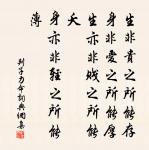 生非貴之所能存
身非愛之所能厚
生亦非賤之所能
夭
身亦非輕之所能
薄
列子力命詞典網集